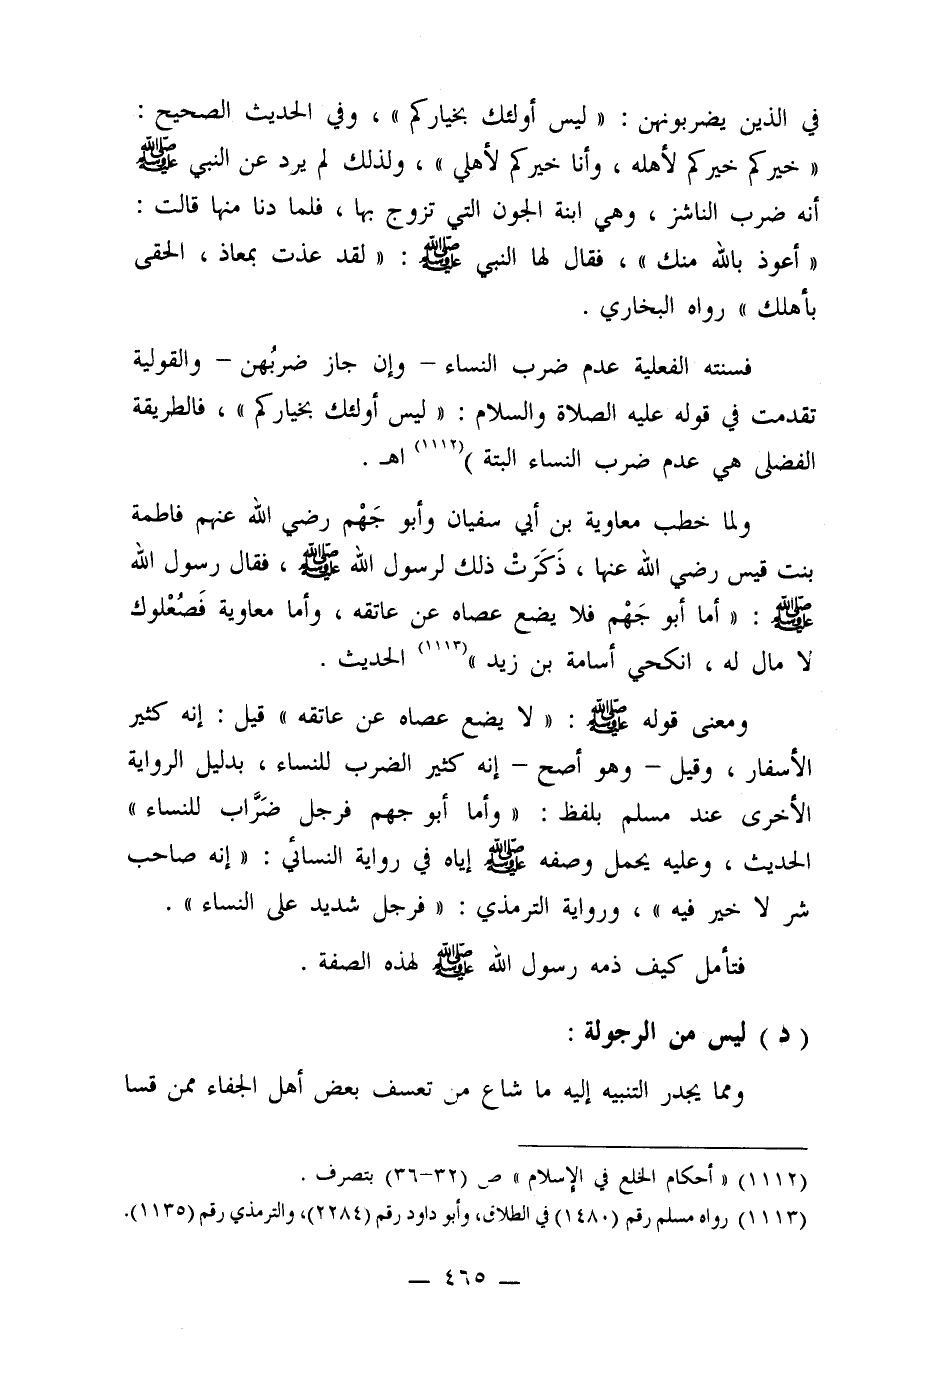 في الذين يضربونهن : « ليس أولئك بخياركم » ، وفي الحديث الصحيح :
« خيركم خيركم لأهله ، وأنا خيركم لأهلي » ، ولذلك لم يرد عن النبي ﷺ
أنه ضرب الناشز ، وهي ابنة الجون التي تزوج بها ، فلما دنا منها قالت :
« أعوذ بالله منك » ، فقال لها النبي ﷺ : « لقد عذت بمعاذ ، الحقى
بأهلك » رواه البخاري .
فسنته الفعلية عدم ضرب النساء – وإن جاز ضربُهن – والقولية
تقدمت في قوله عليه الصلاة والسلام : « ليس أولئك بخياركم » ، فالطريقة
الفضلى هي عدم ضرب النساء البتة )(١١١٢) اهـ .
ولما خطب معاوية بن أبي سفيان وأبو جَهْم رضي الله عنهم فاطمة
بنت قيس رضي الله عنها ، ذَكَرَتْ ذلك لرسول الله ﷺ ، فقال رسول الله
ﷺ : « أما أبو جَهْم فلا يضع عصاه عن عاتقه ، وأما معاوية فَصُعْلوك
لا مال له ، انكحي أسامة بن زيد »(١١١٣) الحديث .
ومعنى قوله ﷺ : « لا يضع عصاه عن عاتقه » قيل : إنه كثير
الأسفار ، وقيل – وهو أصح – إنه كثير الضرب للنساء ، بدليل الرواية
الأخرى عند مسلم بلفظ : « وأما أبو جهم فرجل ضَرَّاب للنساء »
الحديث ، وعليه يحمل وصفه ﷺ إياه في رواية النسائي : « إنه صاحب
شر لا خير فيه » ، ورواية الترمذي : « فرجل شديد على النساء » .
فتأمل كيف ذمه رسول الله ﷺ لهذه الصفة .
( د ) ليس من الرجولة :
ومما يجدر التنبيه إليه ما شاع من تعسف بعض أهل الجفاء ممن قسا
(١١١٢) « أحكام الخلع في الإسلام » ص (٣٢–٣٦) بتصرف .
(١١١٣) رواه مسلم رقم (١٤٨٠) في الطلاق، وأبو داود رقم (٢٢٨٤)، والترمذي رقم (١١٣٥).
— ٤٦٥ —